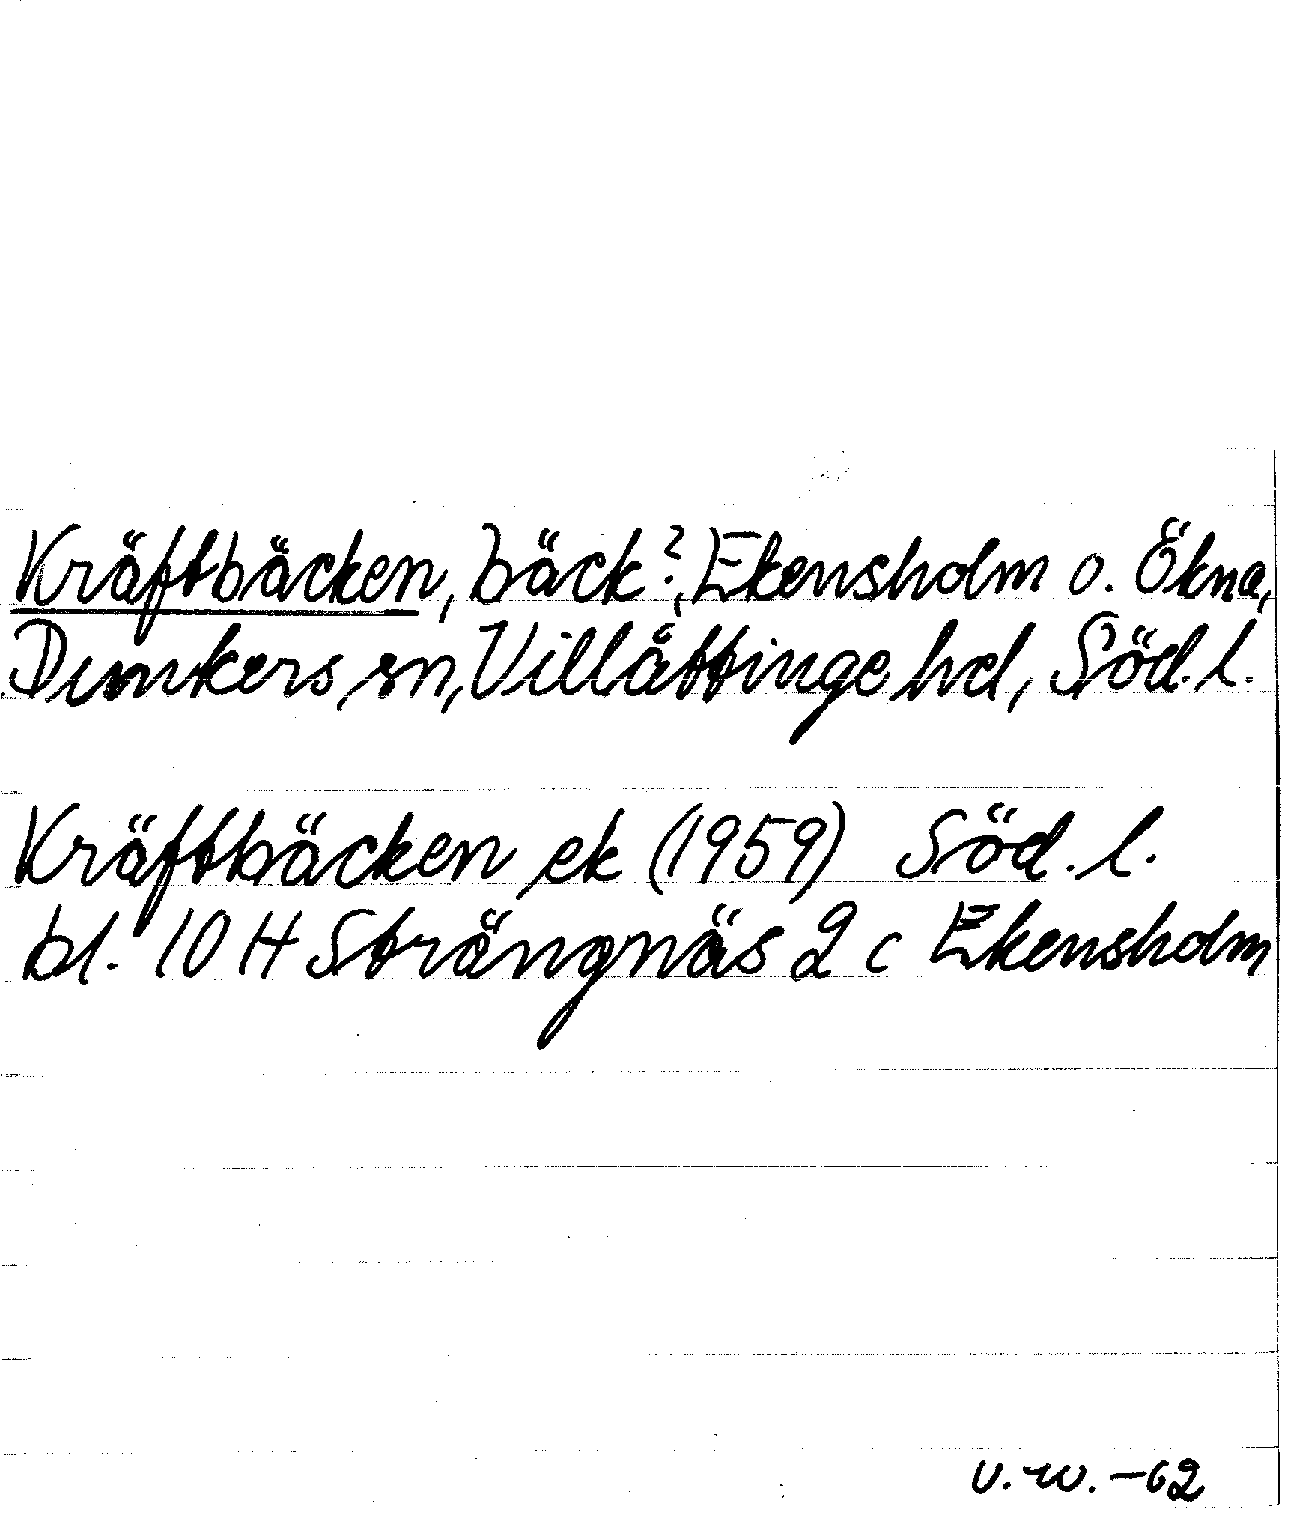 Kräftbäcken, bäck?, Ekensholm o. Ökna,
Dunkers sn, Villåttinge hd, Söd. l.
Kräftbäcken ek (1959) Söd. l.
bl. 10 H Strängnäs 2 c Ekensholm
v.w. -62